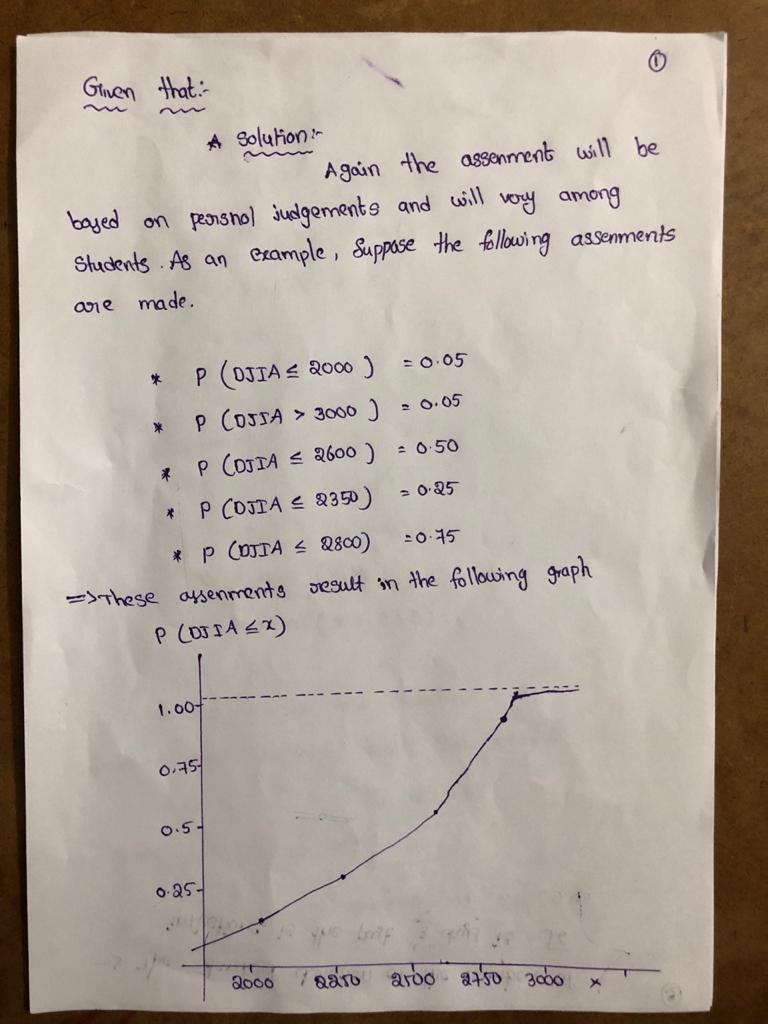 ①
Given that:-
* Solution:-
Again the assenment will be
based on peorsnol judgements and will vory among
Students. As an example, Suppose the following assenments
are made.
* P (DJIA ≤ 2000) = 0.05
* P (DJIA > 3000) = 0.05
* P (DJIA ≤ 2600) = 0.50
* P (DJIA ≤ 2350) = 0.25
* P (DJIA ≤ 2800) = 0.75
=> These assenments result in the following graph
P (DJIA ≤ x)
1.00
0.75
0.5
0.25
2000 2250 2500 2750 3000 x